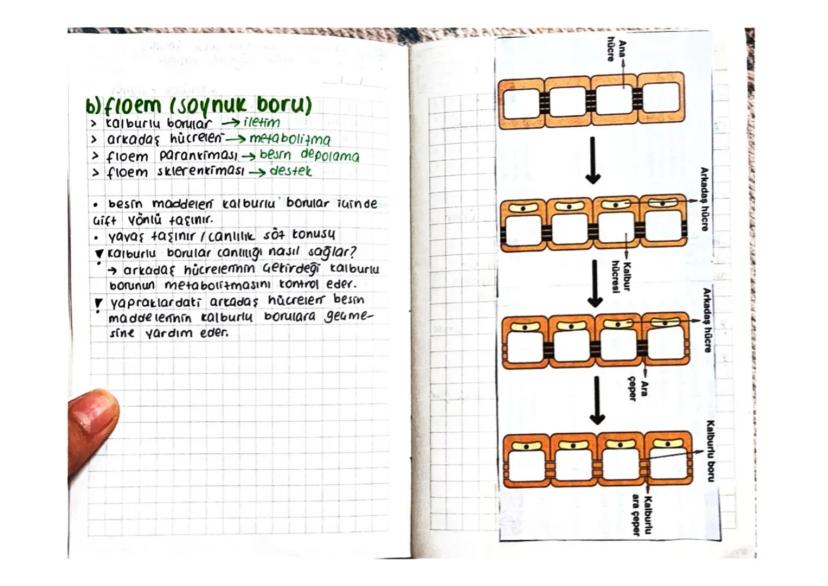 b) floem (soynuk boru)
> kalburlu borular → iletim
> arkadaş hücreleri → metabolizma
> floem parankiması → besin depolama
> floem sklerenkiması → destek
• besin maddeleri kalburlu borular içinde
çift yönlü taşınır.
• yavaş taşınır / canlılık söz konusu
! kalburlu borular canlılığı nasıl sağlar?
→ arkadaş hücrelerinin çekirdeği kalburlu
borunun metabolizmasını kontrol eder.
! yapraklardaki arkadaş hücreleri besin
maddelerinin kalburlu borulara geçme-
sine yardım eder.
Ana
hücre
Arkadaş hücre
Kalbur
hücresi
Arkadaş hücre
Ara
çeper
Kalburlu boru
Kalburlu
ara çeper